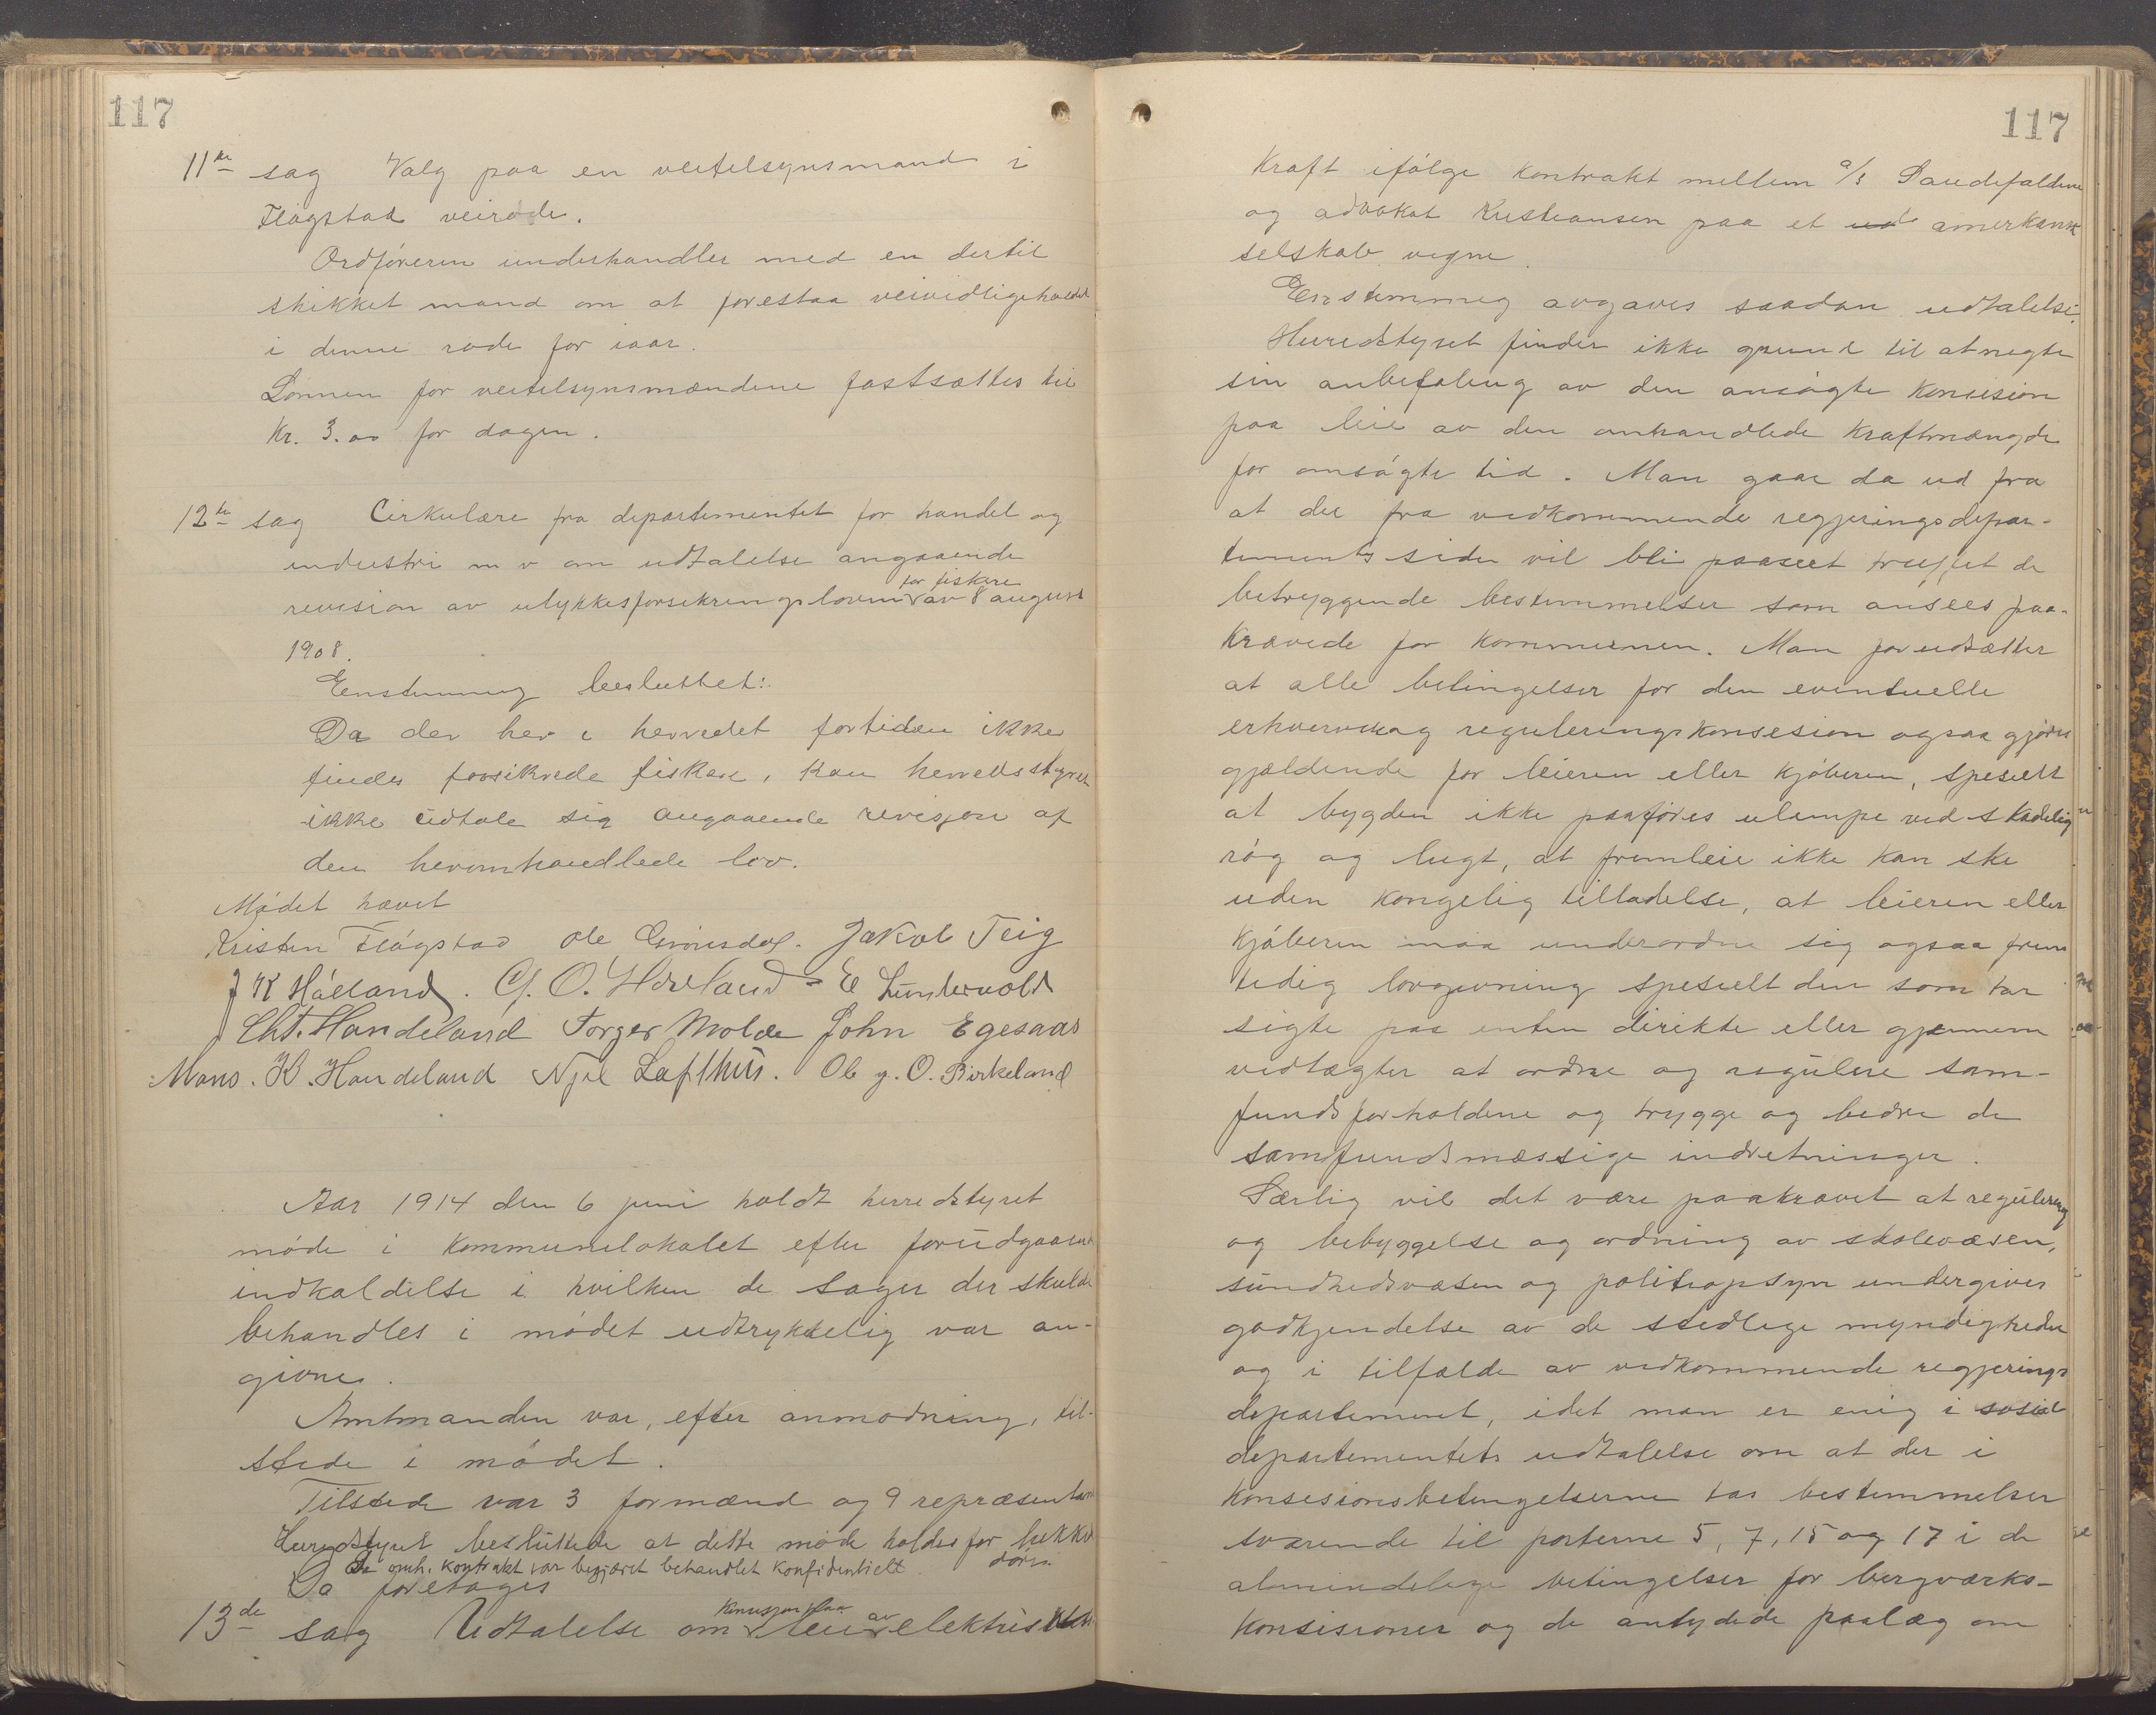 117
11te sag Valg paa en veitilsynsmand i
Fløgstad veirode.
Ordføreren underhandler med en dertil
skikket mand om at forestaa veivedligeholdet
i denne rode for iaar.
Lønnen for veitilsynsmændene fastsættes til
Kr. 3.00 for dagen.
12te sag Cirkulære fra departementet for handel og
industri m v om udtalelse angaaende
for fiskere
revision av ulykkesforsikringsloven av 8 august
1908.
Enstemmig besluttet:
Da der her i herredet fortiden ikke
findes forsikrede fiskere, kan herredsstyret
ikke udtale sig angaaende revisjon af
den heromhandlede lov.
Mødet hævet
Kristen Fløgstad Ole Grønsdal. Jakob Teig
J K Håeland. G. O. Hovland - E Lundevold
Cht. Handeland Torger Molde John Egesaas
Mons. K. Handeland Njel Lofthus. Ole g. O. Birkeland
Aar 1914 den 6 juni holdt herredstyret
møde i Kommunelokalet efter forudgaaende
indkaldelse i hvilken de sager der skulde
behandles i mødet udtrykkelig var an-
givne.
Amtmanden var, efter anmodning, til-
stede i mødet.
Tilstede var 3 formænd og 9 repræsentanter
Herredstyret besluttede at dette møde holdes for lukkede
døre.
Da omh. kontrakt var begjæret behandlet konfidentielt
Da foretages
13de sag Udtalelse om konsesjon paa leie av elektrisk
117
Kraft ifølge Kontrakt mellem a/s Saudefaldene
og advokat Kristiansen paa et ud amerkansk
selskab vegne.
Enstemmig avgaves saadan udtalelse:
Herredstyret finder ikke grund til at negte
sin anbefaling av den ansøgte Konsesion
paa leie av den omhandlede Kraftmængde
for ansøgte tid. Man gaar da ud fra
at der fra vedkommende regjeringsdepar-
tements side vil bli paaseet truffet de
betryggende bestemmelser som ansees paa-
krævede for Kommunen. Man forudsætter
at alle betingelser for den eventuelle
erhvervs og reguleringskonsesion ogsaa gjøres
gjældende for leieren eller Kjøberen, spesielt
at bygden ikke paaføres ulempe ved skadelig
røg og lugt, at fremleie ikke kan ske
uden kongelig tilladelse, at leieren eller
Kjøberen maa underordne sig ogsaa frem
tidig lovgivning spesielt den som tar
sigte paa enten direkte eller gjennem
vedtægter at ordne og regulere sam-
fundsforholdene og trygge og bedre de
samfundsmæssige indretninger.
Særlig vil det være paakrævet at regulering
og bebyggelse og ordning av skolevæsen,
sundhedsvæsen og politiopsyn undergives
godkjendelse av de stedlige myndigheder
og i tilfælde av vedkommende regjerings
departement, idet man er enig i sosial
departementets udtalelse om at der i
Konsesionsbetingelserne tas bestemmelser
svarende til posterne 5, 7, 15 og 17 i de
almindelige betingelser for bergværks-
Konsisioner og de antydede paalæg om